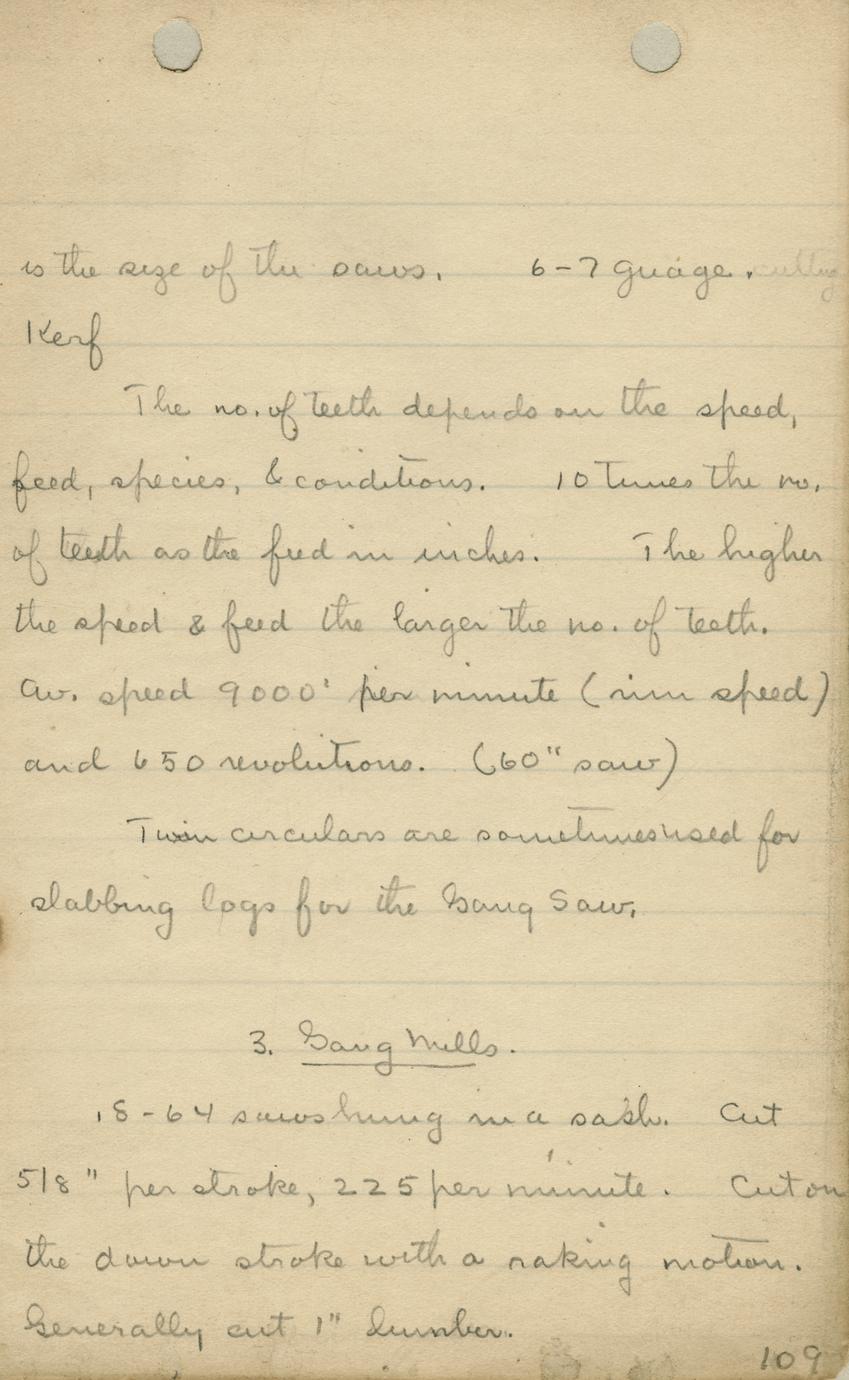 is the size of the saws. 6-7 guage. cutting
Kerf
The no. of teeth depends on the speed,
feed, species, & conditions. 10 times the no.
of teeth as the feed in inches. The higher
the speed & feed the larger the no. of teeth.
Av. speed 9000' per minute (rim speed)
and 650 revolutions. (60" saw)
Twin circulars are sometimes used for
slabbing logs for the Gang Saw.
3. Gang Mills.
18-64 saws hung in a sash. Cut
5/8" per stroke, 225 per minute. Cut on
the down stroke with a raking motion.
Generally cut 1" lumber.
109